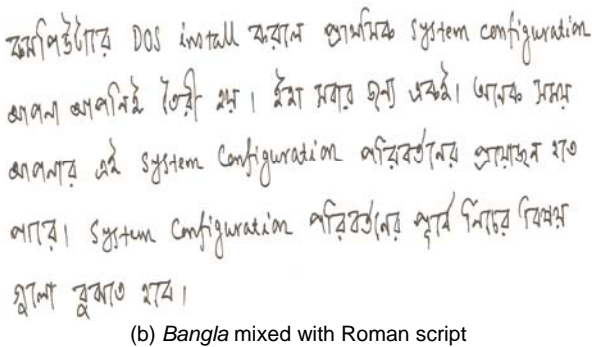 কমপিউটারে DOS install করলে প্রাথমিক system configuration
আপনা আপনিই তৈরী হয়। ইহা সবার জন্য একই। অনেক সময়
আপনার এই system Configuration পরিবর্তনের প্রয়োজন হতে
পারে। System Configuration পরিবর্তনের পূর্বে নিচের বিষয়
গুলো বুঝতে হবে।
(b) Bangla mixed with Roman script